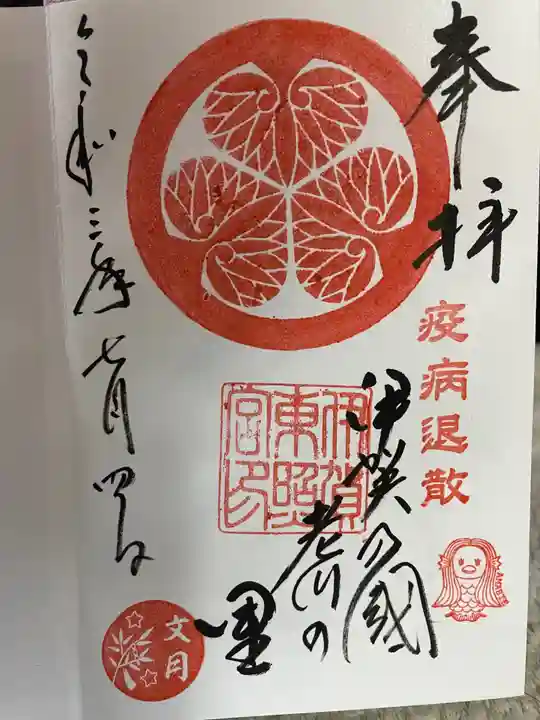 奉拝
疫病退散
伊賀乃國
老川の
里
伊賀
東照
宮印
令和三年七月四日
文月